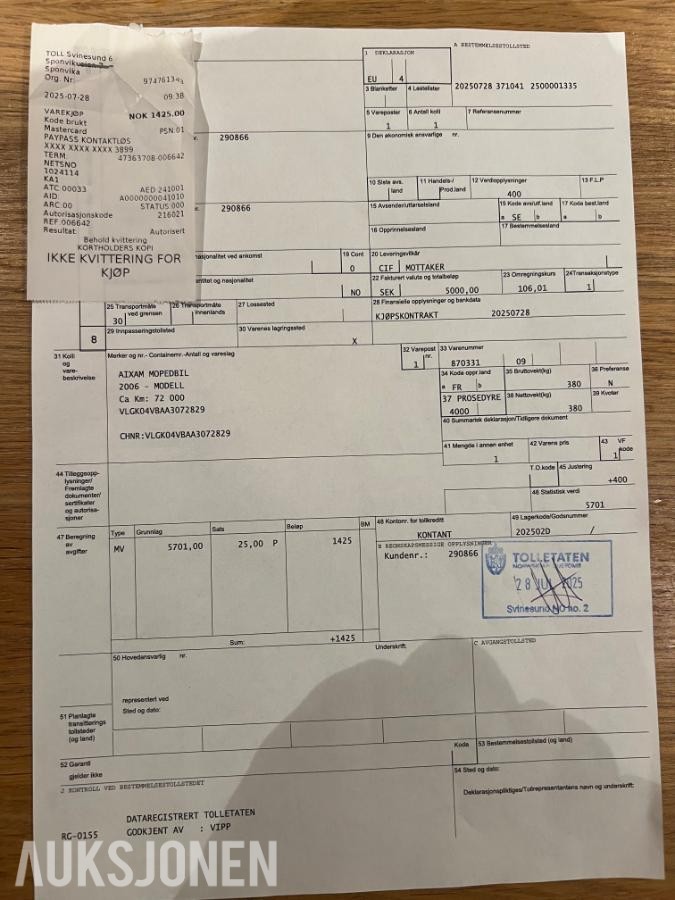 TOLL Svinesund 6
Sponvika
Org. Nr: 974761343
2025-07-28 09:38
VAREKJØP NOK 1425.00
Kode brukt
Mastercard PSN:01
PAYPASS KONTAKTLØS
XXXX XXXX XXXX 3899
TERM: 47363708-006642
NETSNO
1024114
KA1
ATC:00033 AED:241001
AID: A0000000041010
ARC:00 STATUS:000
Autorisasjonskode 216021
REF:006642
Resultat: Autorisert
Behold kvittering
KORTHOLDERS KOPI
IKKE KVITTERING FOR
KJØP
1 DEKLARASJON
EU 4
A BESTEMMELSESTOLLSTED
20250728 371041 2500001335
3 Blanketter 4 Lastelister
5 Vareposter 6 Antall kolli 7 Referansenummer
1 1
e. 290866
9 Den økonomisk ansvarlige nr.
10 Siste avs. land 11 Handels-/ Prod.land 12 Verdiopplysninger 13 F.L.P
400
e. 290866
15 Avsender/utførselsland 15 Kode avs/utf.land 17 Kode best.land
a SE b a b
16 Opprinnelsesland 17 Bestemmelsesland
nasjonalitet ved ankomst 19 Cont 20 Leveringsvilkår
0 CIF MOTTAKER
ntitet og nasjonalitet 22 Fakturert valuta og totalbeløp 23 Omregningskurs 24Transaksjonstype
NO SEK 5000,00 106,01 1
25 Transportmåte ved grensen 26 Transportmåte innenlands 27 Lossested 28 Finansielle opplysninger og bankdata
30 KJØPSKONTRAKT 20250728
8 29 Innpasseringstollsted 30 Varenes lagringssted
X
31 Kolli og vare- beskrivelse
Merker og nr.- Containernr.-Antall og vareslag
32 Varepost nr. 33 Varenummer
1 870331 09
AIXAM MOPEDBIL
2006 - MODELL
Ca Km: 72 000
VLGK04VBAA3072829
CHNR:VLGK04VBAA3072829
34 Kode oppr.land 35 Bruttovekt(kg) 36 Preferanse
a FR b 380 N
37 PROSEDYRE 38 Nettovekt(kg) 39 Kvoter
4000 380
40 Summarisk deklarasjon/Tidligere dokument
41 Mengde i annen enhet 42 Varens pris 43 VF kode
1 1
44 Tilleggsopp-
lysninger/
Fremlagte
dokumenter/
sertifikater
og autorisa-
sjoner
T.O.kode 45 Justering
+400
46 Statistisk verdi
5701
47 Beregning
av
avgifter
Type Grunnlag Sats Beløp BM
MV 5701,00 25,00 P 1425
48 Kontonr. for tollkreditt 49 Lagerkode/Godsnummer
KONTANT 202502D /
B REGNSKAPSMESSIGE OPPLYSNINGER
Kundenr.: 290866
TOLLETATEN
NORWEGIAN CUSTOMS
28 JUL 2025
Svinesund NO no. 2
Sum: +1425
50 Hovedansvarlig nr. Underskrift:
C AVGANGSTOLLSTED
representert ved
Sted og dato:
51 Planlagte
transitterings
tollsteder
(og land)
52 Garanti
gjelder ikke
Kode 53 Bestemmelsestollsted (og land)
J KONTROLL VED BESTEMMELSESTOLLSTEDET
54 Sted og dato:
Deklarasjonspliktiges/Tollrepresentantens navn og underskrift:
DATAREGISTRERT TOLLETATEN
GODKJENT AV : VIPP
RG-0155
AUKSJONEN